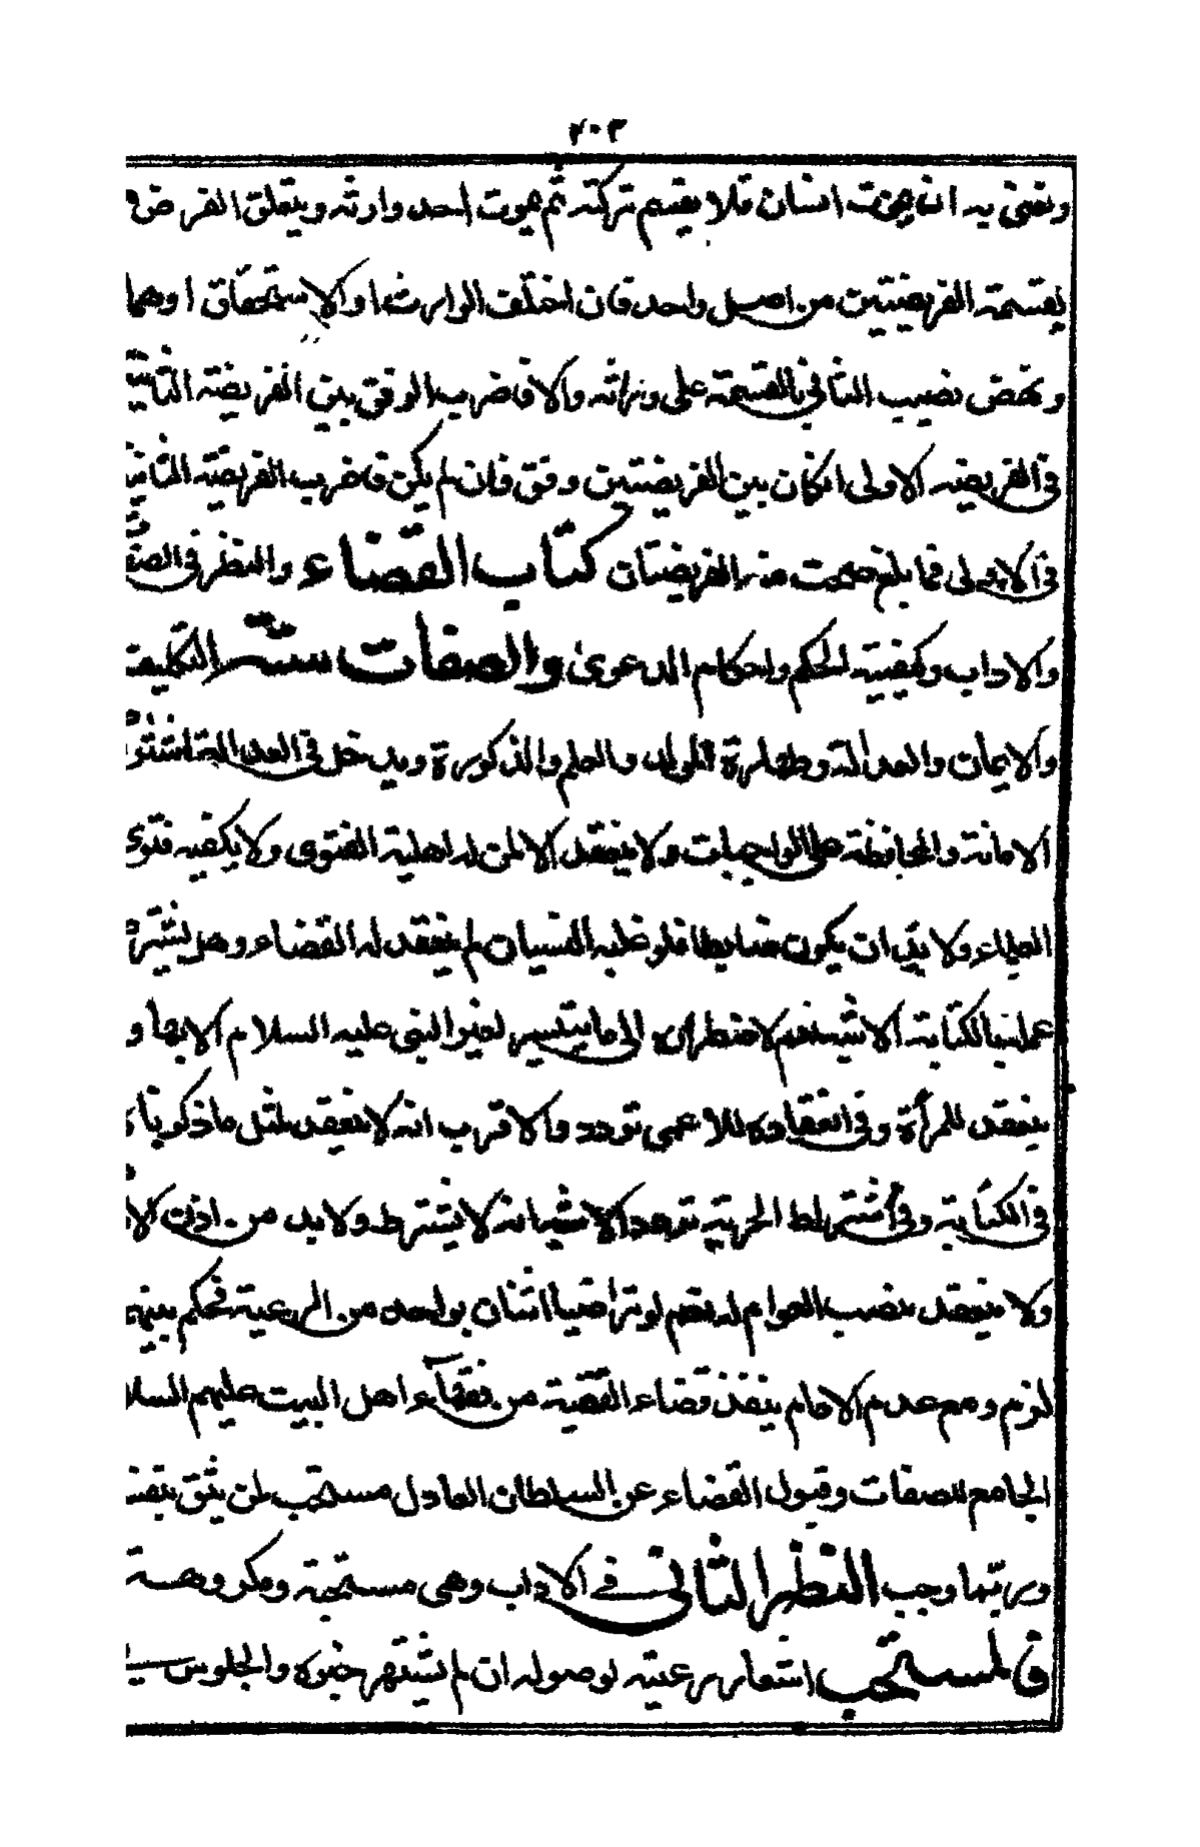 ٢٠٣
ونعني به ان يموت انسان فلا يقسم تركته ثم يموت احد وارثه ويتعلق الغرض
بقسمة الفريضتين من اصل واحد فان اختلف الوارث او الاستحقاق او هما
ونهض نصيب الثاني بالقسمة على وراثه والا فاضرب الوفق بين الفريضة الثانية
في الفريضة الاولى ان كان بين الفريضتين وفق فان لم يكن فاضرب الفريضة الثانية
في الاولى فما بلغ صحت منه الفريضتان كتاب القضاء والنظر في الصفات
والاداب وكيفية الحكم واحكام الدعوى والصفات ستة التكليف
والايمان والعدالة وطهارة المولد والعلم والذكورة ويدخل في العدالة اشتراط
الامانة والمحافظة على الواجبات ولا ينعقد الا لمن له اهلية الفتوى ولا يكفيه فتوى
العلماء ولا بد ان يكون ضابطا فلو غلبه النسيان لم ينعقد له القضاء وهل يشترط
علمه بالكتابة الاشبه نعم لاضطراره الى ما يتيسر لغير النبي عليه السلام الا بها و
ينعقد للمرأة وفي انعقاده للاعمى تردد والاقرب انه لا ينعقد لمثل ما ذكرناه
في الكتابة وفي اشتراط الحرية تردد الاشبه انه لا يشترط ولا بد من اذن
ولا ينعقد بنصب العوام له نعم لو تراضيا اثنان بواحد من الرعية فحكم بينهم
لزم ومع عدم الامام ينفذ قضاء الفقيه من فقهاء اهل البيت عليهم السلا
الجامع للصفات وقبول القضاء عن السلطان العادل مستحب لمن يثق بنفسه
وربما وجب النظر الثاني في الاداب وهي مستحبة ومكروهة
فالمستحب اشعار رعيته لوصوله ان لم يشتهر خبره والجلوس